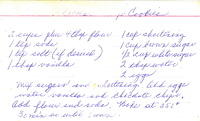 Cookies
2 cups plus 4 tbsp flour 1 cup shortening
1 tsp soda 1 cup brown sugar
1 tsp salt (if desired) 1/2 cup white sugar
1 tbsp vanilla 2 tbsp water
2 eggs
Mix sugars and shortening add eggs
water vanilla and chocolate chips.
Add flour and soda. Bake at 350°